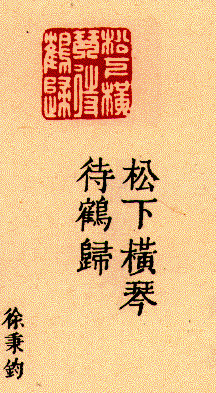 松下橫
琴待
鶴歸
松下橫琴
待鶴歸
徐秉鈞